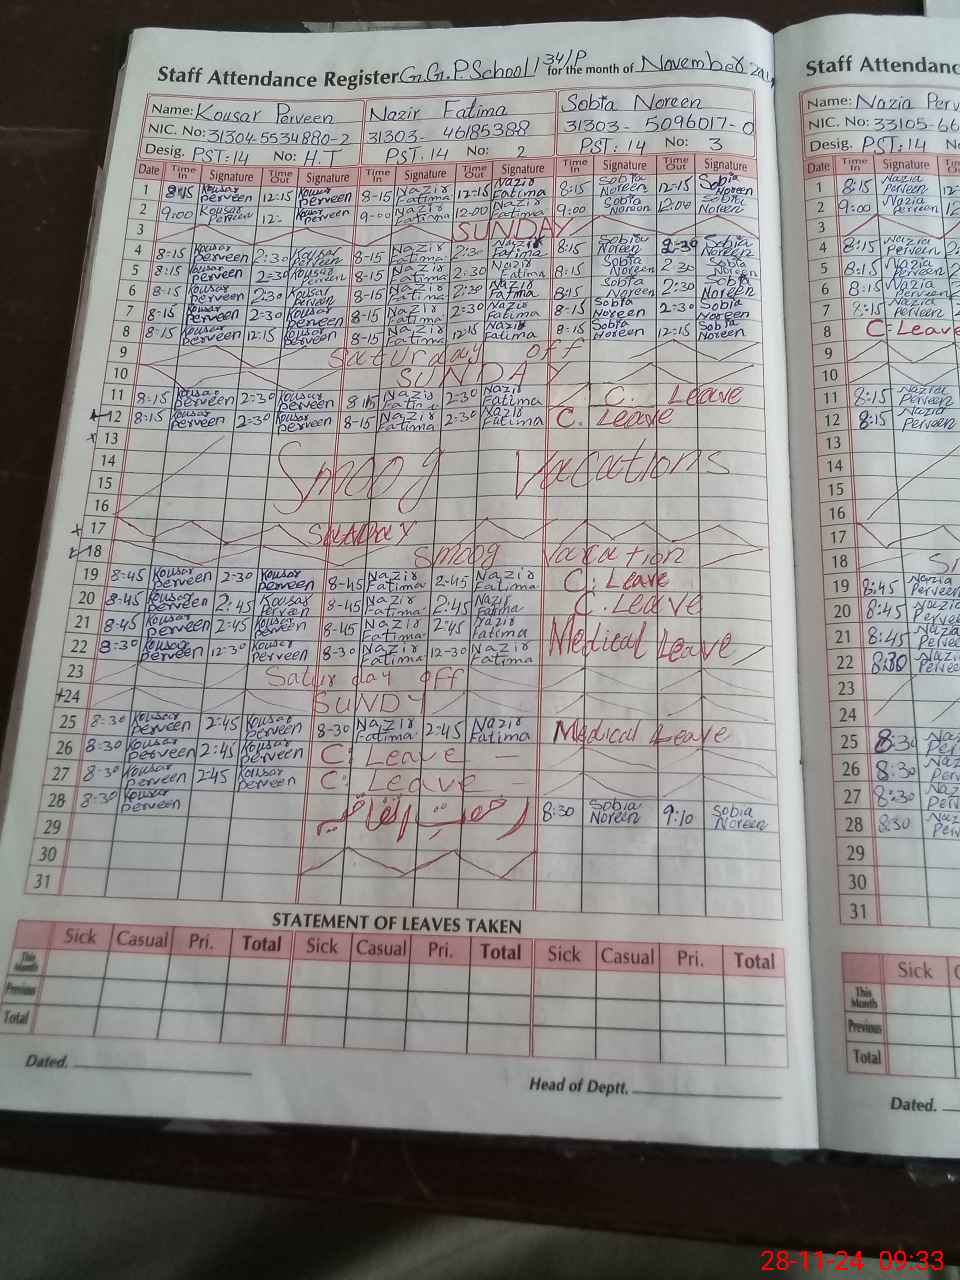 Staff Attendance Register G.G.P.School 34/P for the month of November
Name: Kousar Perveen Nazir Fatima Sobia Noreen
NIC. No: 31304-5534880-2 31303- 46185388 31303- 5096017-0
Desig. PST:14 No: H.T PST:14 2 PST:14 No: 3
Date Time In Signature Time Out Signature Time In Signature Time Out Signature Time In Signature Time Out Signature
1 8:15 Kousar Perveen 12:15 Kousar Perveen 8-15 Nazir Fatima 12-15 Nazir Fatima 8:15 Sobia Noreen 12-15 Sobia Noreen
2 9:00 Kousar Perveen 12:- Kousar Perveen 9-00 Nazir Fatima 12-00 Nazir Fatima 9:00 Sobia Noreen 12:00 Sobia Noreen
3 SUNDAY
4 8-15 Kousar Perveen 2:30 Kousar Perveen 8-15 Nazir Fatima 2:30 Nazir Fatima 8:15 Sobia Noreen 2-30 Sobia Noreen
5 8:15 Kousar Perveen 2-30 Kousar Perveen 8-15 Nazir Fatima 2:30 Nazir Fatima 8:15 Sobia Noreen 2-30 Sobia Noreen
6 8:15 Kousar Perveen 2:30 Kousar Perveen 8-15 Nazir Fatima 2:30 Nazir Fatima 8:15 Sobia Noreen 2:30 Sobia Noreen
7 8-15 Kousar Perveen 2-30 Kousar Perveen 8-15 Nazir Fatima 2-30 Nazir Fatima 8-15 Sobia Noreen 2-30 Sobia Noreen
8 8-15 Kousar Perveen 12:15 Kousar Perveen 8-15 Nazir Fatima 12:15 Nazir Fatima 8:15 Sobia Noreen 12:15 Sobia Noreen
9 Saturday off
10 SUNDAY
11 8:15 Kousar Perveen 2-30 Kousar Perveen 8-15 Nazir Fatima 2-30 Nazir Fatima C. Leave
12 8:15 Kousar Perveen 2-30 Kousar Perveen 8-15 Nazir Fatima 2-30 Nazir Fatima C. Leave
13
14 Smoog Vacations
15
16
17 SUNDAY
18 Smoog Vacation
19 8:45 Kousar Perveen 2-30 Kousar Perveen 8-45 Nazir Fatima 2-45 Nazir Fatima C: Leave
20 8-45 Kousar Perveen 2:45 Kousar Perveen 8-45 Nazir Fatima 2:45 Nazir Fatima C. Leave
21 8-45 Kousar Perveen 2:45 Kousar Perveen 8-45 Nazir Fatima 2:45 Nazir Fatima Medical Leave
22 8:30 Kousar Perveen 12-30 Kousar Perveen 8-30 Nazir Fatima 12-30 Nazir Fatima
23 Saturday off
24 SUNDY
25 8:30 Kousar Perveen 2:45 Kousar Perveen 8-30 Nazir Fatima 2-45 Nazir Fatima Medical Leave
26 8:30 Kousar Perveen 2:45 Kousar Perveen C: Leave —
27 8:30 Kousar Perveen 2:45 Kousar Perveen C: Leave —
28 8:30 Kousar Perveen رخصت اتفاقیہ 8:30 Sobia Noreen 9:10 Sobia Noreen
29
30
31
STATEMENT OF LEAVES TAKEN
Sick Casual Pri. Total Sick Casual Pri. Total Sick Casual Pri. Total
This Month
Previous
Total
Dated.
Head of Deptt.
Staff Attendanc
Name: Nazia Perv
NIC. No: 33105-66
Desig. PST:14
Date Time In Signature
1 8:15 Nazia Perveen
2 9:00 Nazia Perveen
3
4 8:15 Nazia Perveen
5 8:15 Nazia Perveen
6 8:15 Nazia Perveen
7 8:15 Nazia Perveen
8 C:Leave
9
10
11 8:15 Nazia Perveen
12 8:15 Nazia Perveen
13
14
15
16
17
18
19 8:45 Nazia Perveen
20 8:45 Nazia Perveen
21 8:45 Nazia
22 8:30 Nazi
23
24
25 8:30
26 8:30
27 8:30
28 8:30
29
30
31
Sick
This Month
Previous
Total
Dated.
28-11-24 09:33